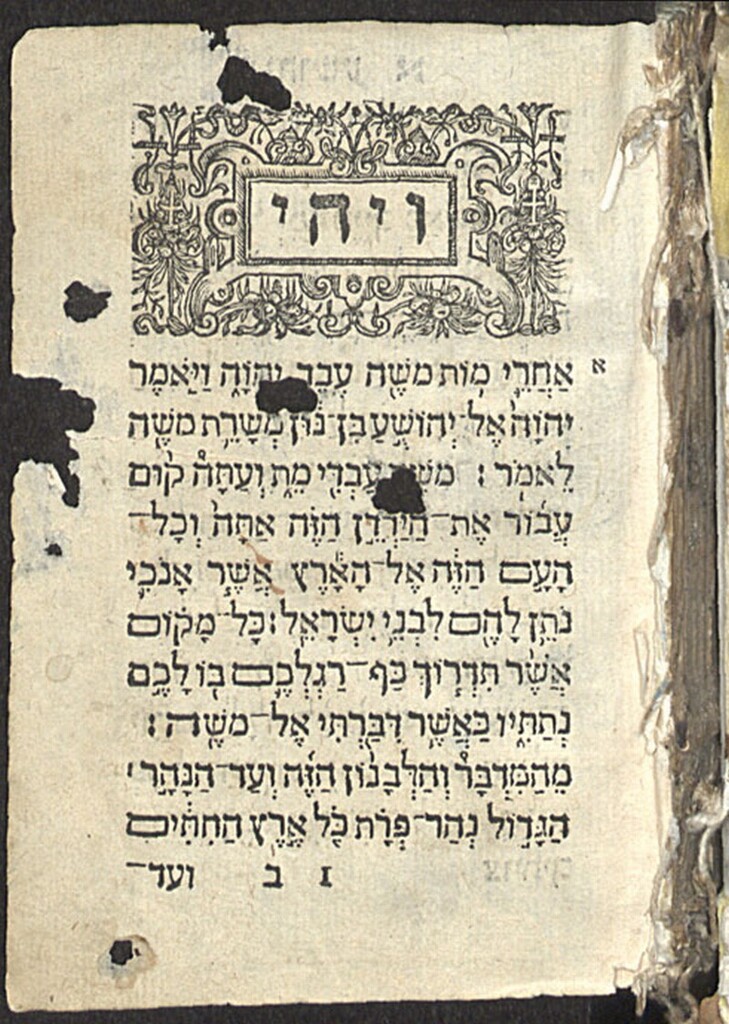 ויהי
א
אַחֲרֵי מוֹת מֹשֶׁה עֶבֶד יְהוָֹה וַיֹּאמֶר
יְהוָֹה אֶל־יְהוֹשֻׁעַ בִּן־נוּן מְשָׁרֵת מֹשֶׁה
לֵאמֹר׃ מֹשֶׁה עַבְדִּי מֵת וְעַתָּה קוּם
עֲבוֹר אֶת־הַיַּרְדֵּן הַזֶּה אַתָּה וְכָל־
הָעָם הַזֶּה אֶל־הָאָרֶץ אֲשֶׁר אָנֹכִי
נֹתֵן לָהֶם לִבְנֵי יִשְׂרָאֵל׃ כָּל־מָקוֹם
אֲשֶׁר תִּדְרוֹךְ כַּף־רַגְלְכֶם בּוֹ לָכֶם
נְתַתִּיו כַּאֲשֶׁר דִּבַּרְתִּי אֶל־מֹשֶׁה׃
מֵהַמִּדְבָּר וְהַלְּבָנוֹן הַזֶּה וְעַד־הַנָּהָר
הַגָּדוֹל נְהַר־פְּרָת כֹּל אֶרֶץ הַחִתִּים
1 ב ועד־